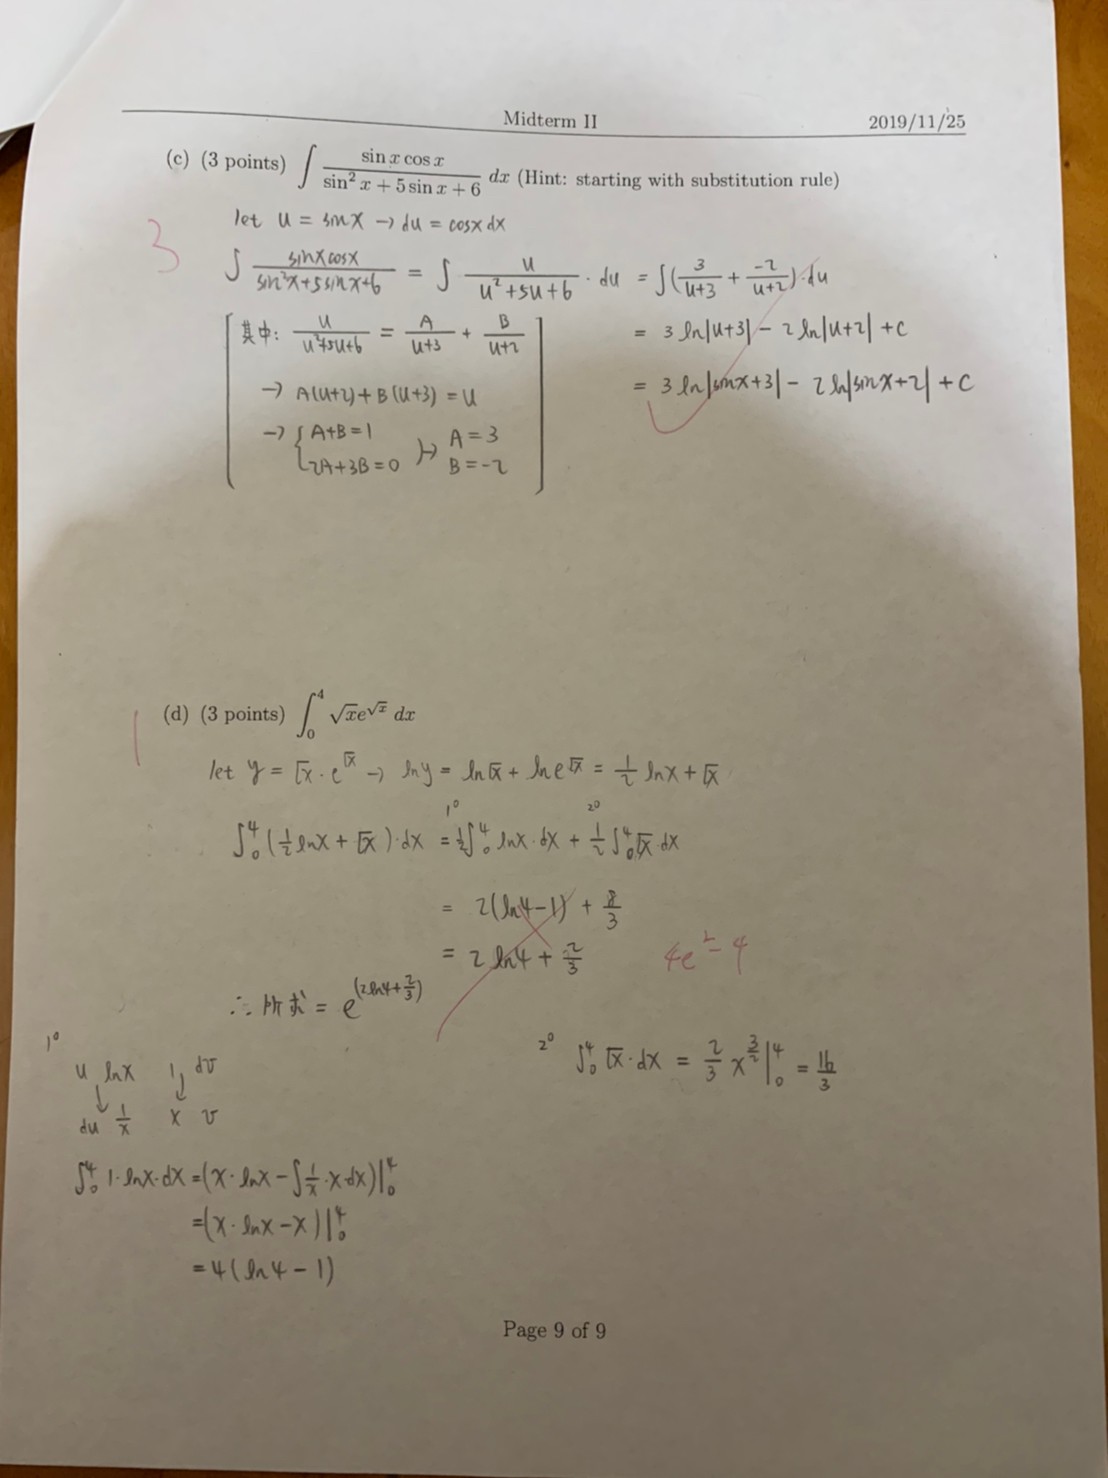 Midterm II 2019/11/25
(c) (3 points) ∫ (sin x cos x)/(sin² x + 5 sin x + 6) dx (Hint: starting with substitution rule)
3
let u = sinx → du = cosx dx
∫ (sinx cosx)/(sin²x+5sinx+6) = ∫ u/(u²+5u+6) · du = ∫(3/(u+3) + -2/(u+2))·du
= 3 ln|u+3| - 2 ln|u+2| + c
= 3 ln|sinx+3| - 2 ln|sinx+2| + c
其中: u/(u²+5u+6) = A/(u+3) + B/(u+2)
→ A(u+2)+B(u+3) = u
→ { A+B=1
2A+3B=0 } → A=3
B=-2
1
(d) (3 points) ∫₀⁴ √x e^√x dx
let y = √x · e^√x → ln y = ln√x + ln e^√x = 1/2 lnx + √x
1° 2°
∫₀⁴ (1/2 lnx + √x)·dx = 1/2 ∫₀⁴ lnx·dx + 1/2 ∫₀⁴ √x·dx
= 2(ln4-1) + 8/3
= 2 ln4 + 2/3
4e²-4
∴ 所求 = e^(2ln4+2/3)
1°
u lnx 1 dv
↓ ↓
du 1/x x v
∫₀⁴ 1·lnx·dx = (x·lnx - ∫ 1/x ·x dx)|₀⁴
= (x·lnx - x)|₀⁴
= 4(ln4 - 1)
2° ∫₀⁴ √x·dx = 2/3 x^(3/2)|₀⁴ = 16/3
Page 9 of 9